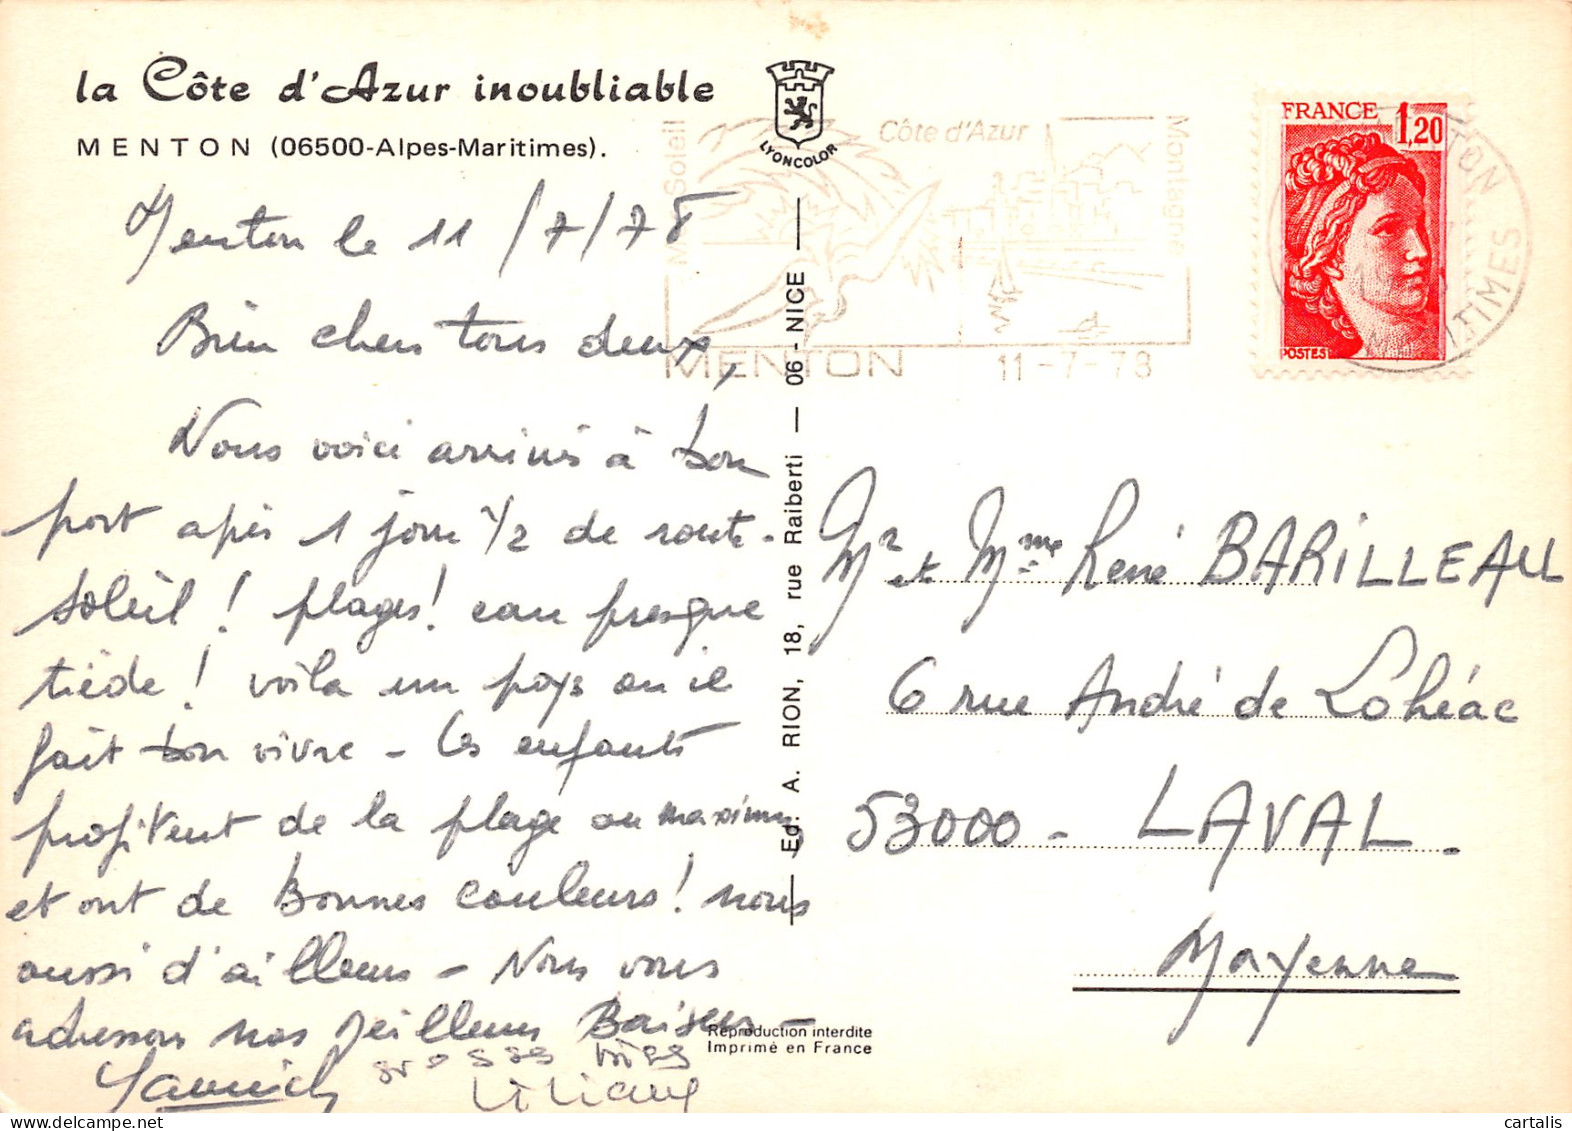 la Côte d'Azur inoubliable
MENTON (06500-Alpes-Maritimes).
LYONCOLOR
Soleil
Côte d'Azur
Montagne
MENTON 11-7-78
FRANCE 1,20
POSTES
Menton le 11/7/78
Bien chers tous deux,
Nous voici arrivés à bon
port après 1 jour 1/2 de route-
soleil! plages! eau presque
tiède! voila un pays ou il
fait bon vivre - Les enfants
profitent de la plage au maximum
et ont de Bonnes couleurs! nous
aussi d'ailleurs - Nous vous
adressons nos meilleurs Baisers -
Yannick grosses bises
Liliane
Ed. A. RION, 18, rue Raiberti — 06 - NICE
Mr et Mme René BARILLEAU
6 rue André de Lohéac
53000 - LAVAL -
Mayenne
Reproduction interdite
Imprimé en France
cartalis